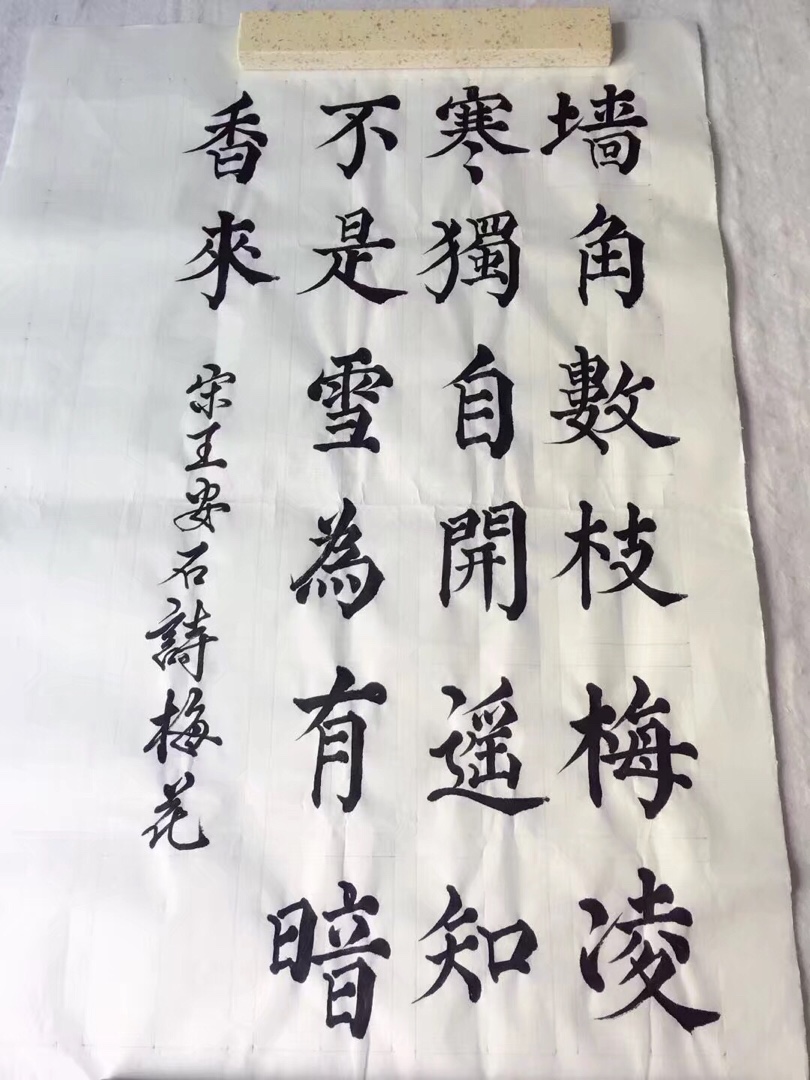 墙角數枝梅凌
寒獨自開遥知
不是雪為有暗
香來
宋王安石詩梅花